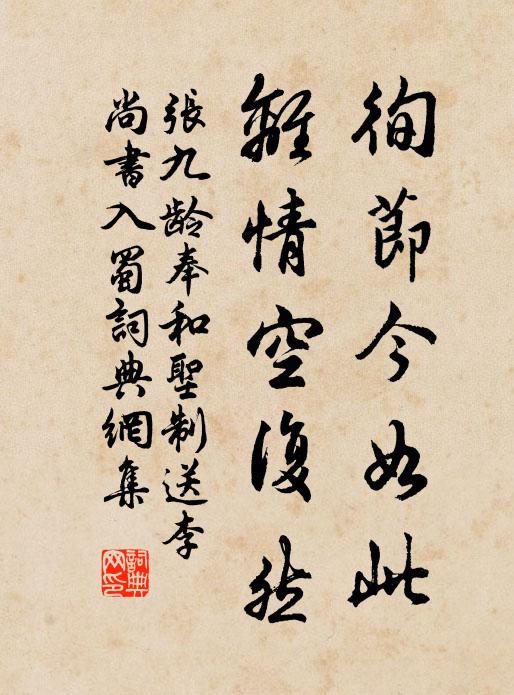 徇節今如此
離情空復然
張九龄奉和聖制送李
尚書入蜀詞典網集
詞典網印